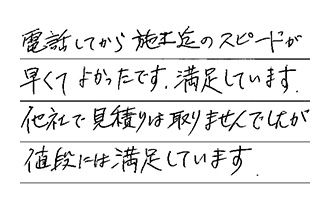 電話してから施工迄のスピードが
早くてよかったです.満足しています.
他社で見積りは取りませんでしたが
値段には満足しています.